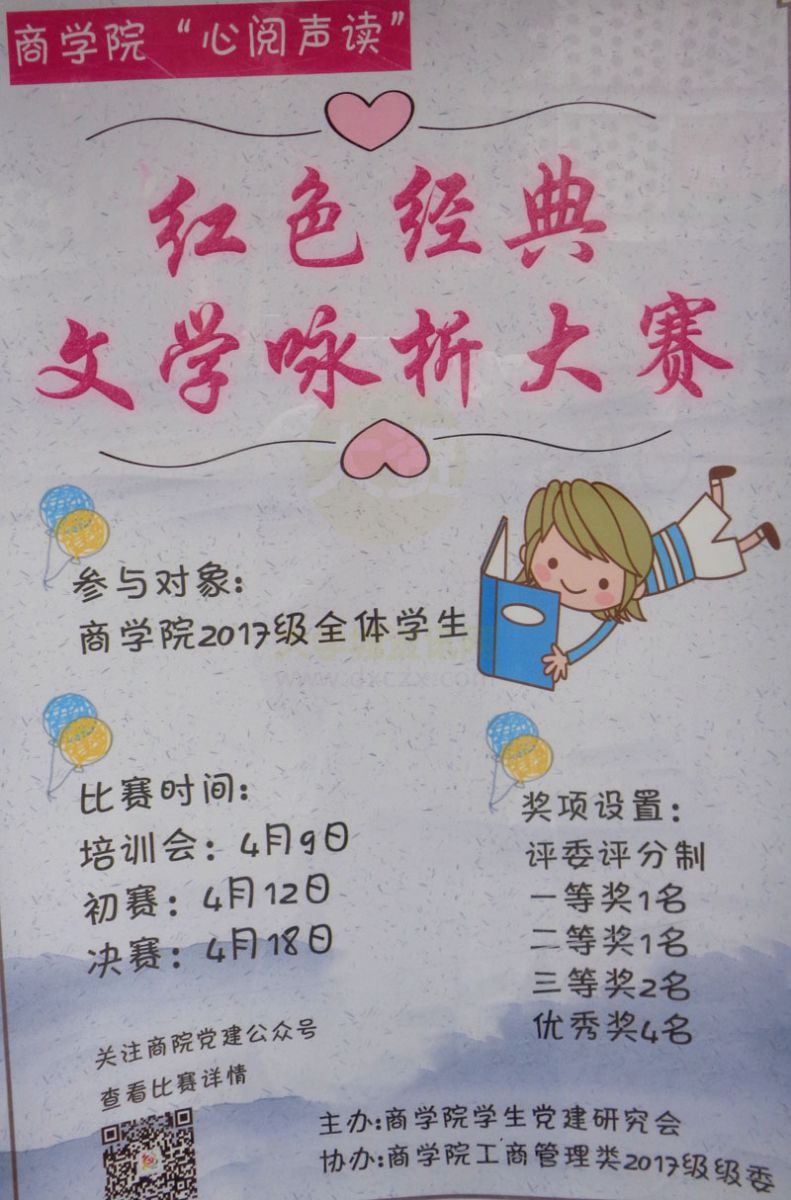 商学院“心阅声读”
红色经典
文学咏析大赛
参与对象：
商学院2017级全体学生
比赛时间：
培训会：4月9日
初赛：4月12日
决赛：4月18日
奖项设置：
评委评分制
一等奖1名
二等奖1名
三等奖2名
优秀奖4名
关注商院党建公众号
查看比赛详情
主办:商学院学生党建研究会
协办:商学院工商管理类2017级级委